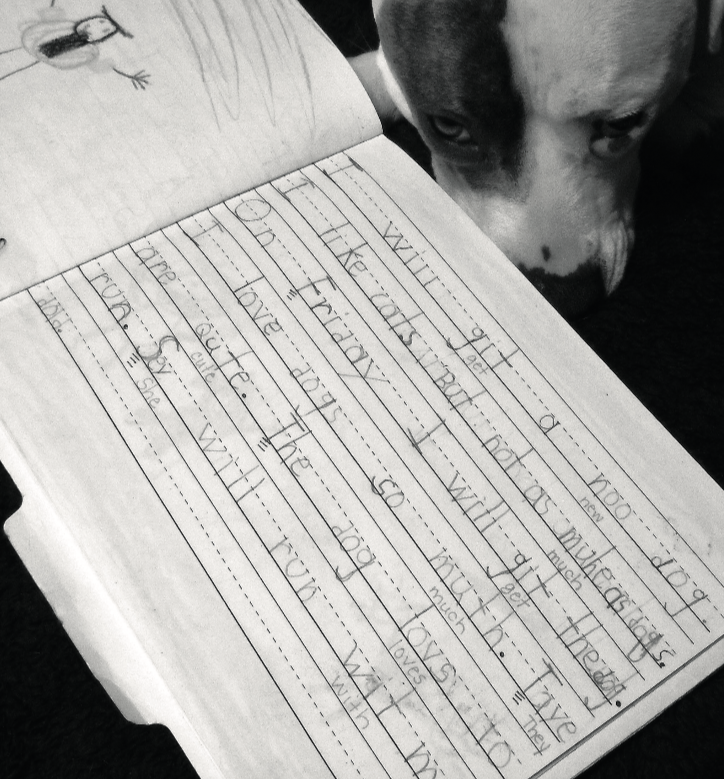 I will git a noo dog.
get new
I like cats But not as muhe as dogs.
much
On Friday I will git the dog.
get
I love dogs so muth. Taye
much They
are qute. The dog lovs to
cute loves
run. Sey will run wit m
She with